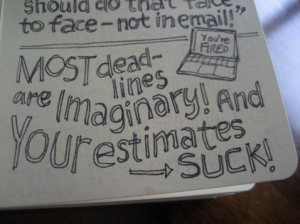 should do that face
to face - not in email!"
YOU'RE
FIRED
MOST dead-
lines
are Imaginary! And
Your estimates
→ SUCK!